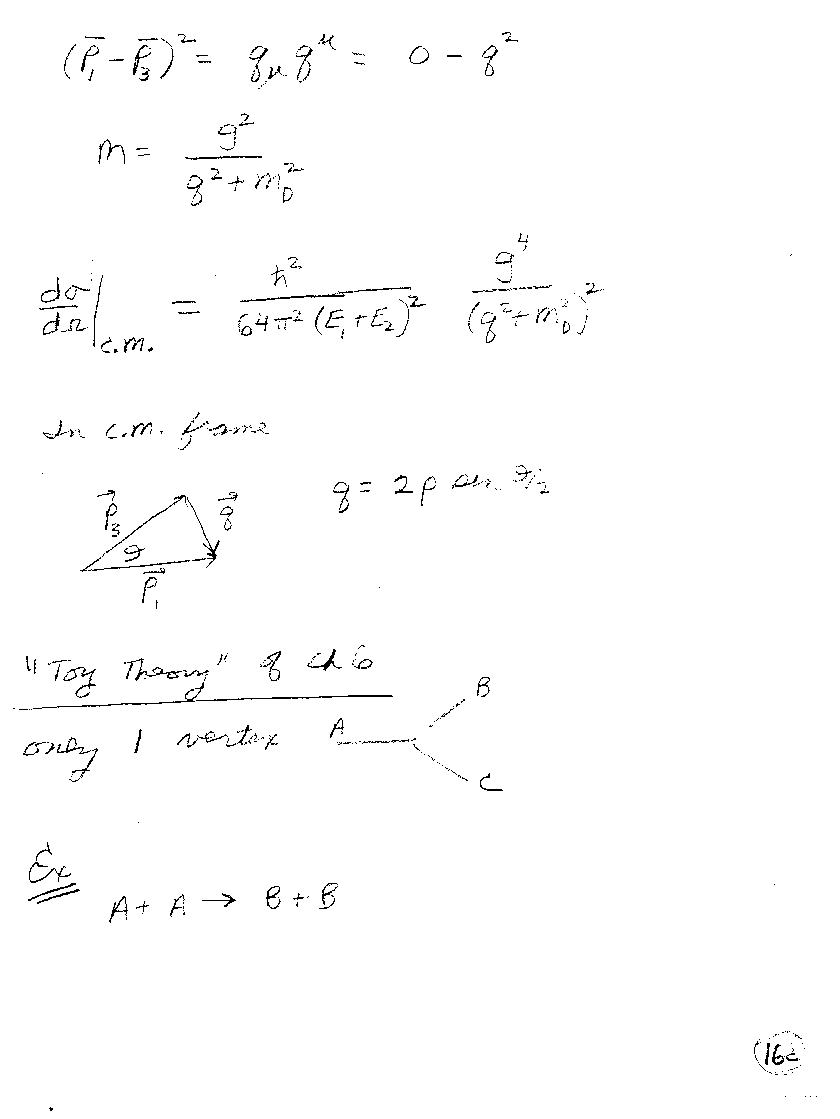 (p̄₁ − p̄₃)² = q_μ q^μ = 0 − q²
m = g² / (q² + m_D²)
dσ/dΩ |c.m. = ħ² / (64π² (E₁ + E₂)²) g⁴ / (q² + m_D²)²
In c.m. frame
q = 2p sin θ/2
p⃗₃ q⃗
θ
p⃗₁
"Toy Theory" of ch 6
B
only 1 vertex A
C
Ex
A + A → B + B